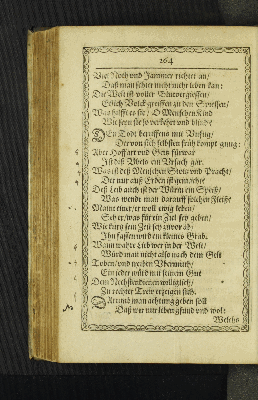 264
Viel Noth und Jammer richtet an/
Daß man schier nicht mehr leben kan:
Die Welt ist voller Blutvergiessen/
Etlich Volck greiffen zu den Spiessen/
Was hilfft es sie/ O Menschen Kind
Wie seyn sie so verkehrt und blind?
DEn Todt beruffens mit Unfug/
Der von sich selbsten früh kompt gnug:
Aber Hoffart und Geitz fürwar
Ist deß Ubels ein Ursach gar.
Was ist deß Menschen Stoltz und Pracht/
Der nur auß Erden ist gemacht?
Deß Leib auch ist der Würm ein Speiß/
Was wende man darauff solchen Fleiß?
Maine einer/er woll ewig leben/
Seh er/was für ein Ziel sey geben/
Wie kurtz sein Zeit sey zuvor ab/
Ihn fasset und ein kleines Grab.
Wann wahre Lieb wer in der Welt/
Würd man nicht also nach dem Gelt
Toben/und treiben Ubermuth/
Ein jeder würd mit seinem Gut
Dem Nechsten dienen williglich/
Zu rechter Trew erzeigen sich.
DArumb man achtung geben soll
Daß wir nur leben gsund und wol:
Welchs